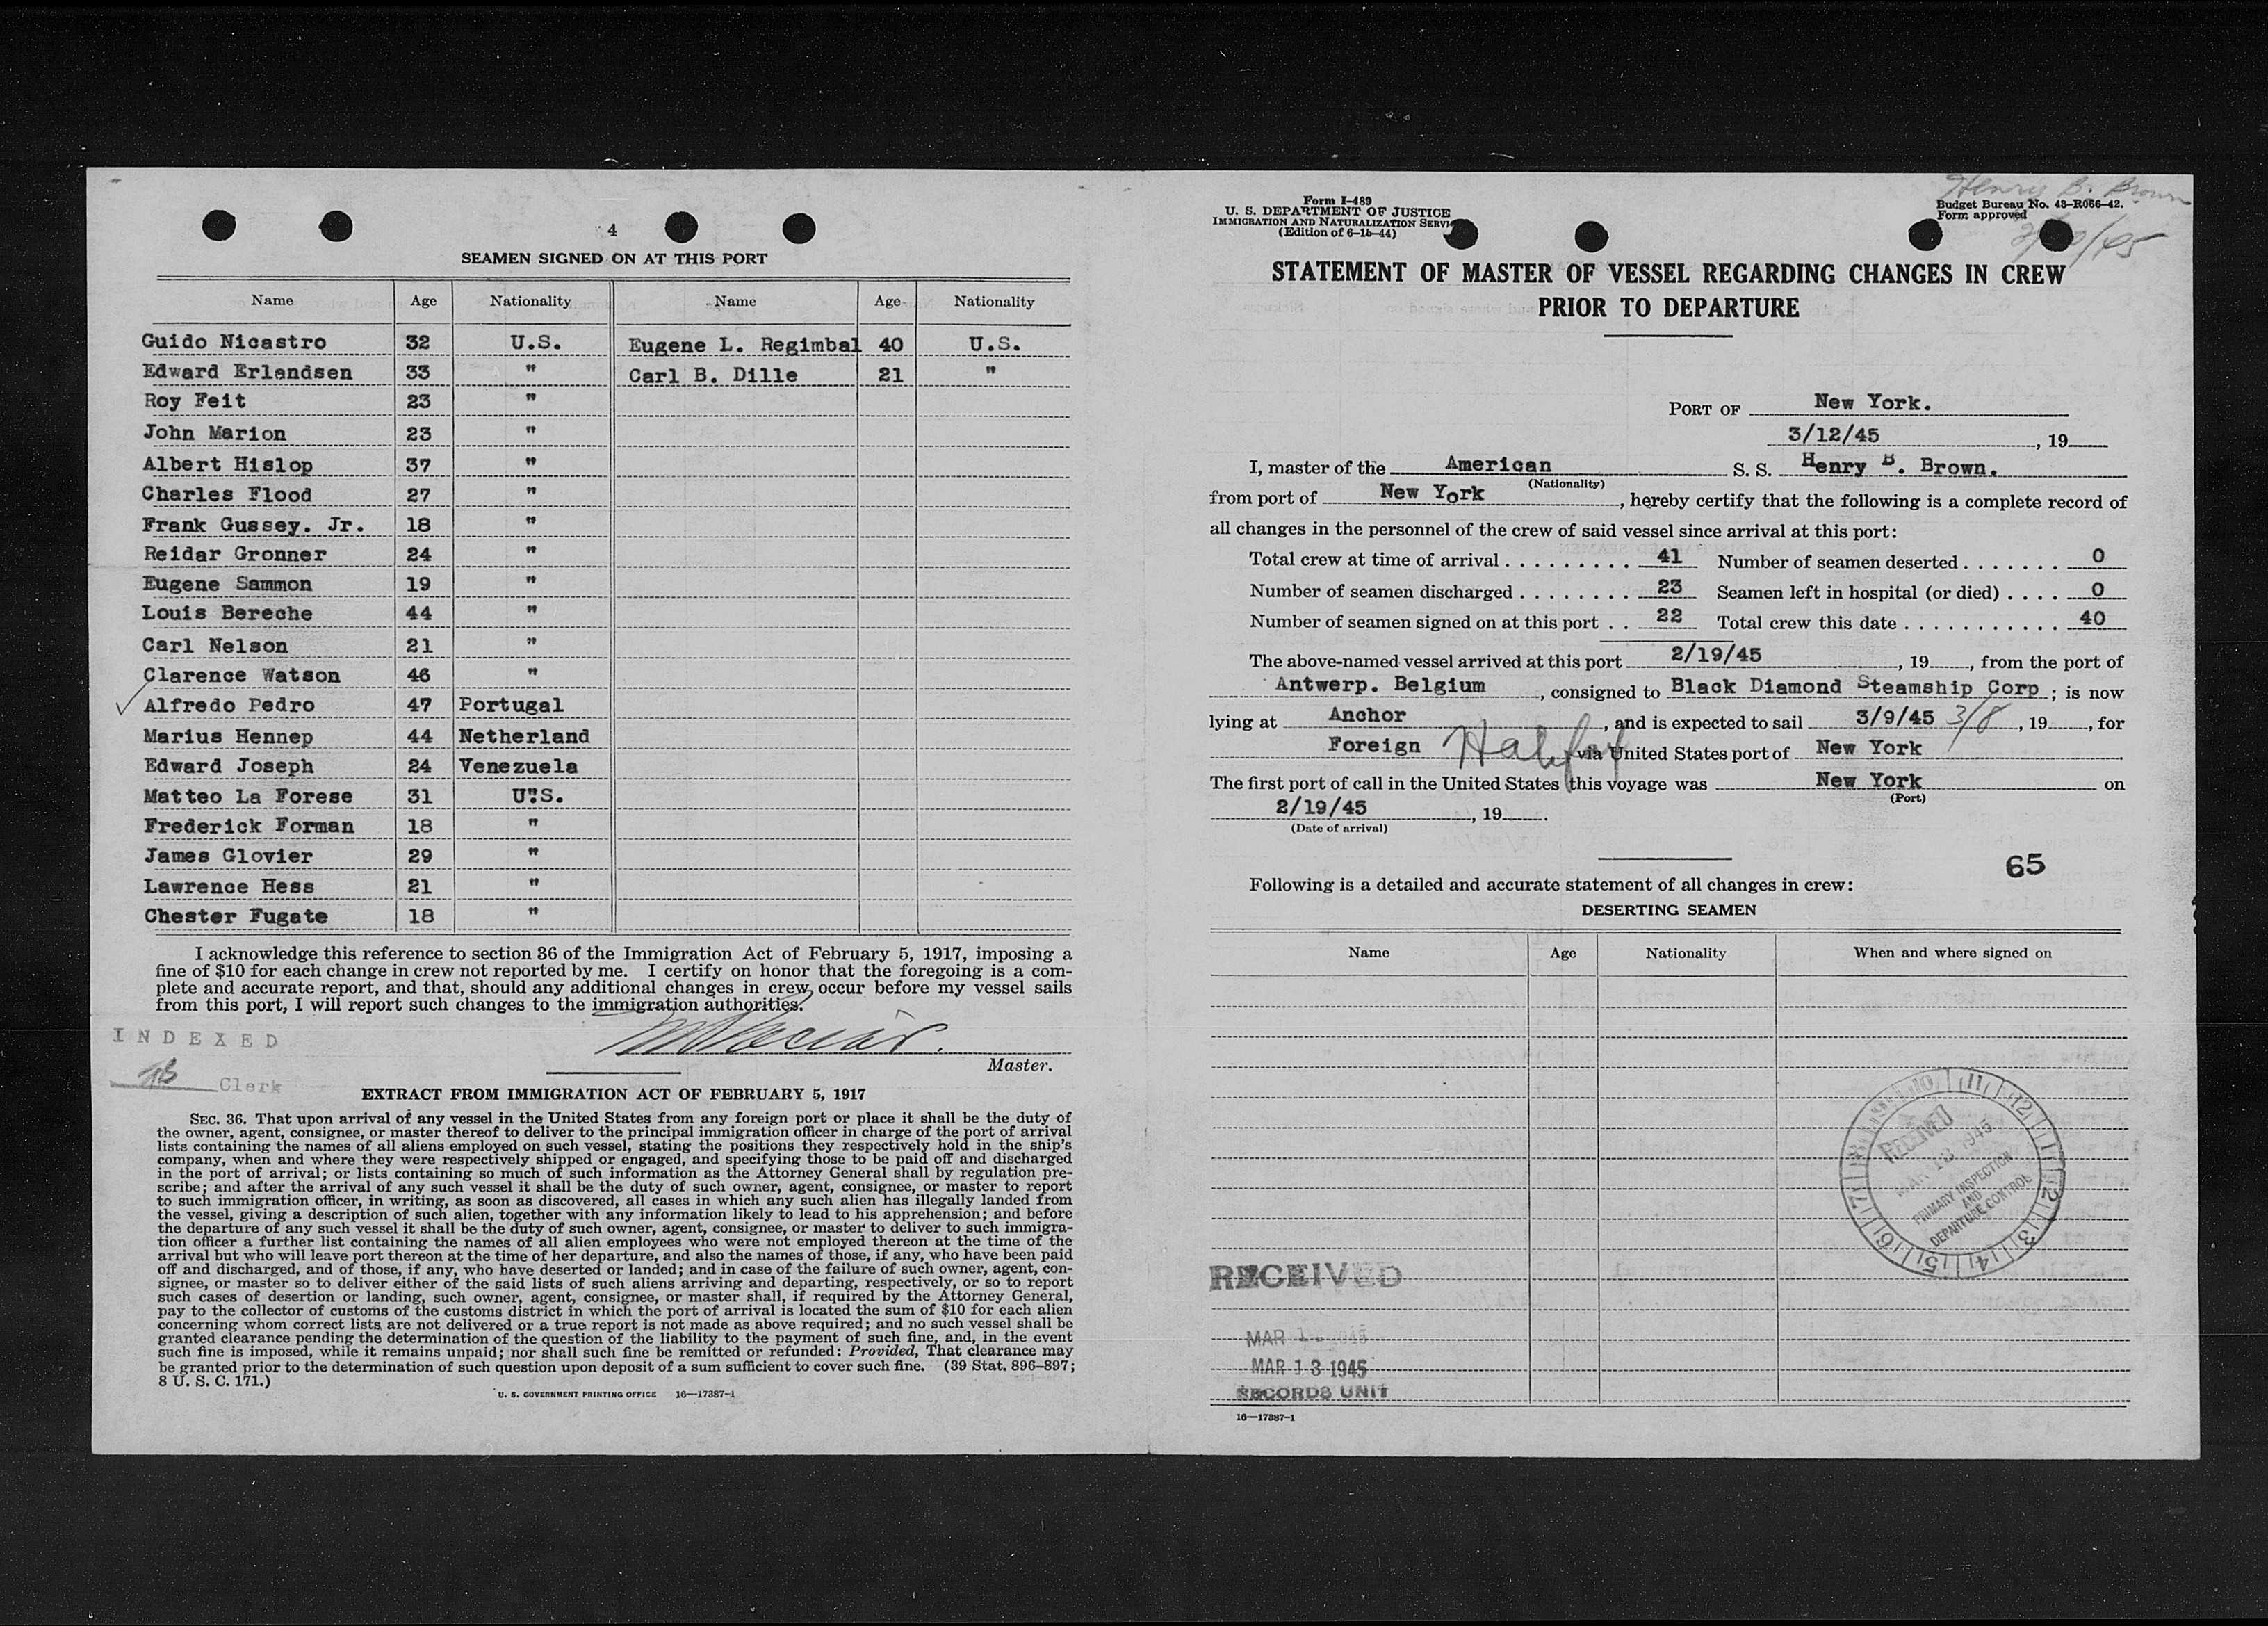 4
SEAMEN SIGNED ON AT THIS PORT
Name Age Nationality Name Age Nationality
Guido Nicastro 32 U.S. Eugene L. Regimbal 40 U.S.
Edward Erlandsen 33 " Carl B. Dille 21 "
Roy Feit 23 "
John Marion 23 "
Albert Hislop 37 "
Charles Flood 27 "
Frank Gussey. Jr. 18 "
Reidar Gronner 24 "
Eugene Sammon 19 "
Louis Bereche 44 "
Carl Nelson 21 "
Clarence Watson 46 "
Alfredo Pedro 47 Portugal
Marius Hennep 44 Netherland
Edward Joseph 24 Venezuela
Matteo La Forese 31 U.S.
Frederick Forman 18 "
James Glovier 29 "
Lawrence Hess 21 "
Chester Fugate 18 "
I acknowledge this reference to section 36 of the Immigration Act of February 5, 1917, imposing a
fine of $10 for each change in crew not reported by me. I certify on honor that the foregoing is a com-
plete and accurate report, and that, should any additional changes in crew occur before my vessel sails
from this port, I will report such changes to the immigration authorities.
INDEXED
Master.
Clerk
EXTRACT FROM IMMIGRATION ACT OF FEBRUARY 5, 1917
SEC. 36. That upon arrival of any vessel in the United States from any foreign port or place it shall be the duty of
the owner, agent, consignee, or master thereof to deliver to the principal immigration officer in charge of the port of arrival
lists containing the names of all aliens employed on such vessel, stating the positions they respectively hold in the ship's
company, when and where they were respectively shipped or engaged, and specifying those to be paid off and discharged
in the port of arrival; or lists containing so much of such information as the Attorney General shall by regulation pre-
scribe; and after the arrival of any such vessel it shall be the duty of such owner, agent, consignee, or master to report
to such immigration officer, in writing, as soon as discovered, all cases in which any such alien has illegally landed from
the vessel, giving a description of such alien, together with any information likely to lead to his apprehension; and before
the departure of any such vessel it shall be the duty of such owner, agent, consignee, or master to deliver to such immigra-
tion officer a further list containing the names of all alien employees who were not employed thereon at the time of the
arrival but who will leave port thereon at the time of her departure, and also the names of those, if any, who have been paid
off and discharged, and of those, if any, who have deserted or landed; and in case of the failure of such owner, agent, con-
signee, or master so to deliver either of the said lists of such aliens arriving and departing, respectively, or so to report
such cases of desertion or landing, such owner, agent, consignee, or master shall, if required by the Attorney General,
pay to the collector of customs of the customs district in which the port of arrival is located the sum of $10 for each alien
concerning whom correct lists are not delivered or a true report is not made as above required; and no such vessel shall be
granted clearance pending the determination of the question of the liability to the payment of such fine, and, in the event
such fine is imposed, while it remains unpaid; nor shall such fine be remitted or refunded: Provided, That clearance may
be granted prior to the determination of such question upon deposit of a sum sufficient to cover such fine. (39 Stat. 896-897;
8 U. S. C. 171.)
U. S. GOVERNMENT PRINTING OFFICE 16—17387-1
Henry B. Brown
Form I-489
U. S. DEPARTMENT OF JUSTICE
IMMIGRATION AND NATURALIZATION
(Edition of 6-15-44)
Budget Bureau No. 43-R066-42.
Form approved
STATEMENT OF MASTER OF VESSEL REGARDING CHANGES IN CREW
PRIOR TO DEPARTURE
PORT OF New York.
3/12/45, 19
I, master of the American S. S. Henry B. Brown.
(Nationality)
from port of New York, hereby certify that the following is a complete record of
all changes in the personnel of the crew of said vessel since arrival at this port:
Total crew at time of arrival 41 Number of seamen deserted 0
Number of seamen discharged 23 Seamen left in hospital (or died) 0
Number of seamen signed on at this port 22 Total crew this date 40
The above-named vessel arrived at this port 2/19/45, 19, from the port of
Antwerp. Belgium, consigned to Black Diamond Steamship Corp; is now
lying at Anchor, and is expected to sail 3/9/45 3/8, 19, for
Foreign Halifax via United States port of New York
The first port of call in the United States this voyage was New York on
(Port)
2/19/45, 19.
(Date of arrival)
65
Following is a detailed and accurate statement of all changes in crew:
DESERTING SEAMEN
Name Age Nationality When and where signed on
10 11 12 1 2 3 4 5 6 7 8 9
RECEIVED
MAR 13 1945
PRIMARY INSPECTION
AND
DEPARTURE CONTROL
RECEIVED
MAR 1945
MAR 13 1945
RECORDS UNIT
16—17387-1